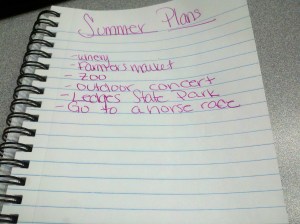 Summer Plans
- winery
- Farmers market
- Zoo
- outdoor concert
- Ledges State Park
- Go to a horse race